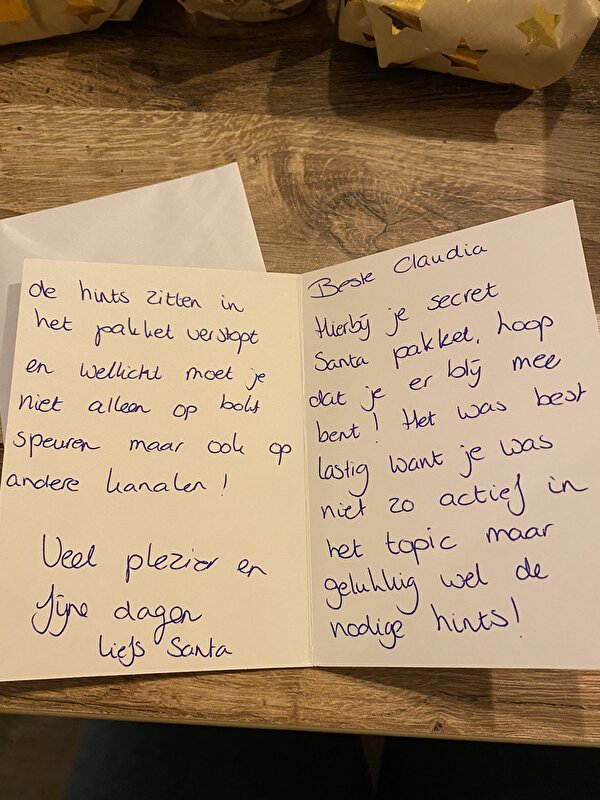 Beste Claudia
Hierbij je secret
Santa pakket, hoop
dat je er blij mee
bent! Het was best
lastig want je was
niet zo actief in
het topic maar
gelukkig wel de
nodige hints!
de hints zitten in
het pakket verstopt
en wellicht moet je
niet alleen op bokt
speuren maar ook op
andere kanalen!
Veel plezier en
fijne dagen
Liefs Santa